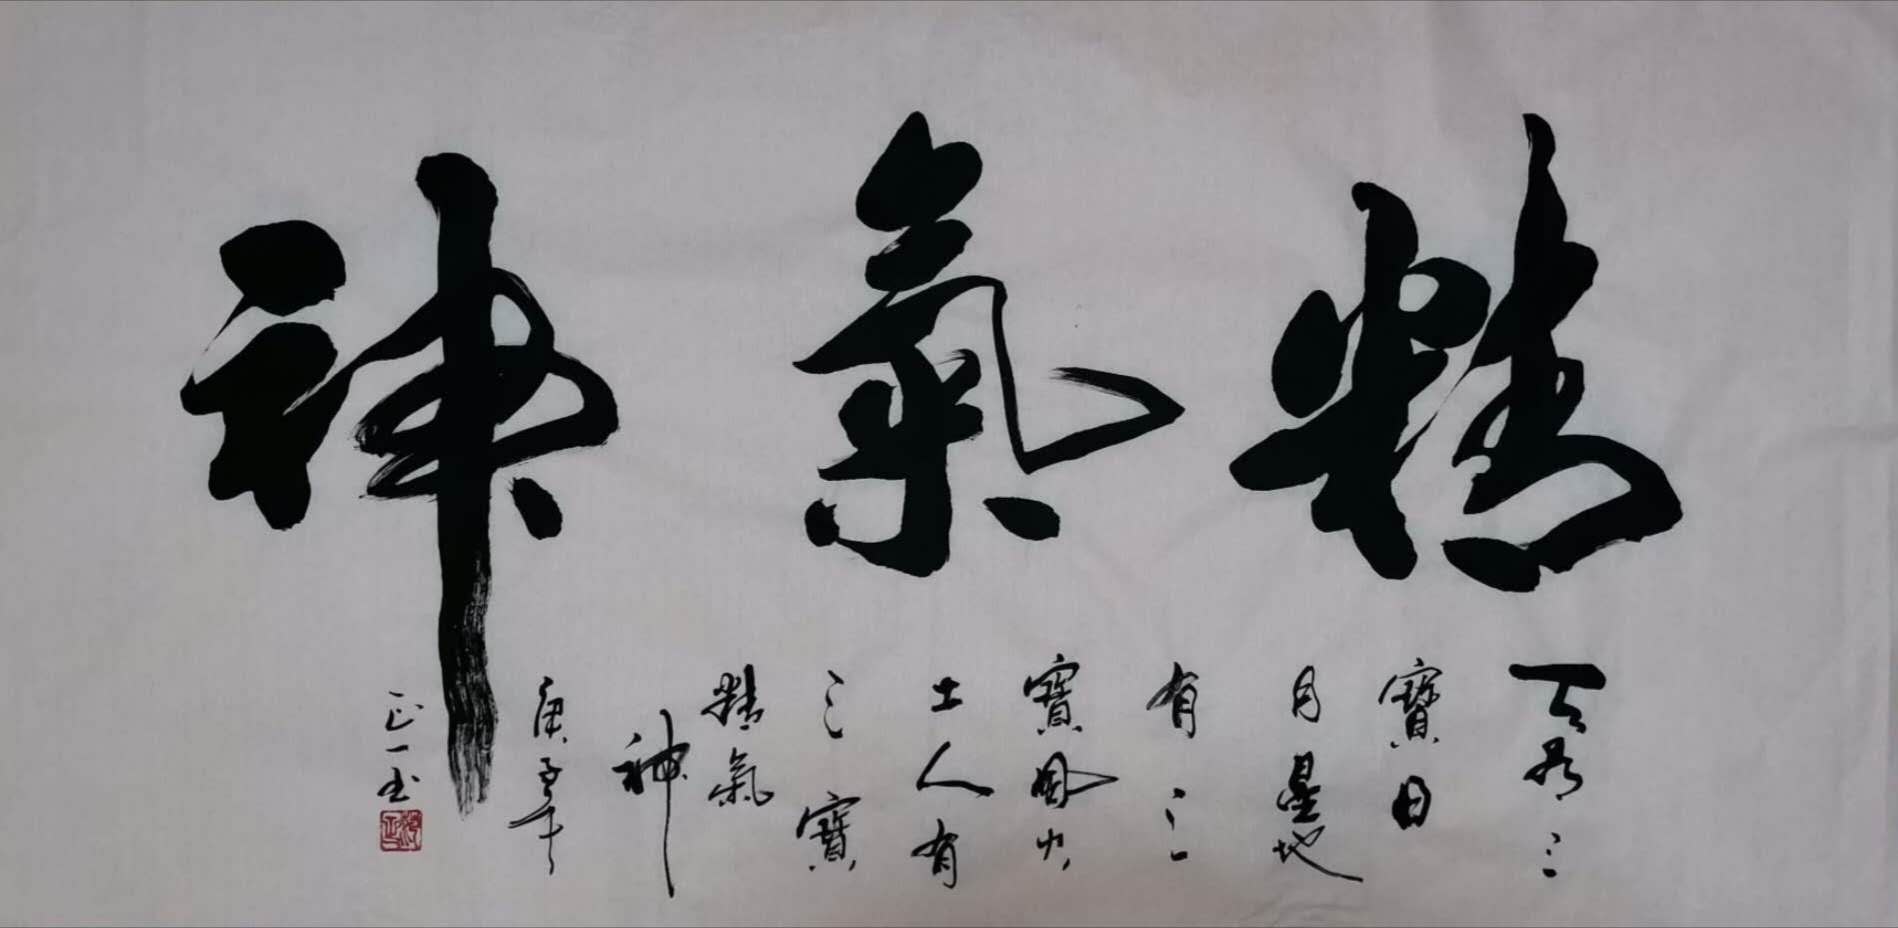 精氣神
天有三
寶日
月星地
有三
寶風火
土人有
三寶
精氣
神
庚子年
正一书